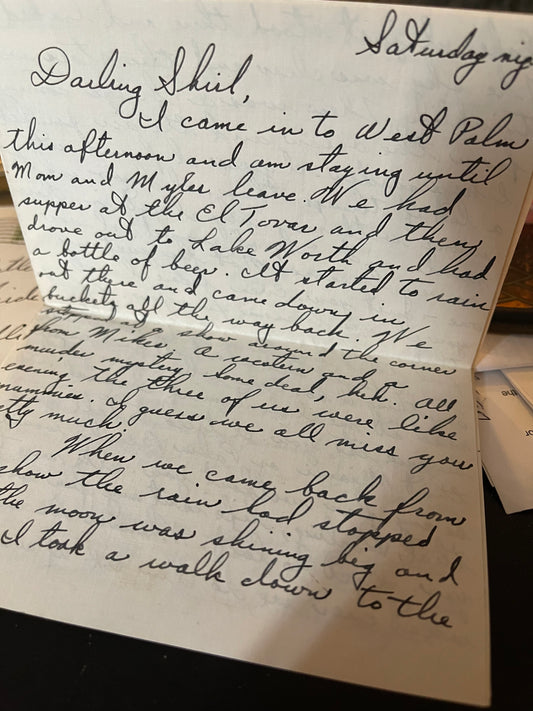 Saturday nig
Darling Shirl,
I came in to West Palm
this afternoon and am staying until
Mom and Myles leave. We had
supper at the El Tovar and then
drove out to Lake Worth and had
a bottle of beer. It started to rain
out there and came down in
buckets all the way back. We
stopped at a show around the corner
from Mikes. A western and a
murder mystery. Some deal, huh. All
evening the three of us were like
mammies. I guess we all miss you
etty much.
When we came back from
show the rain had stopped
the moon was shining big and
I took a walk down to the